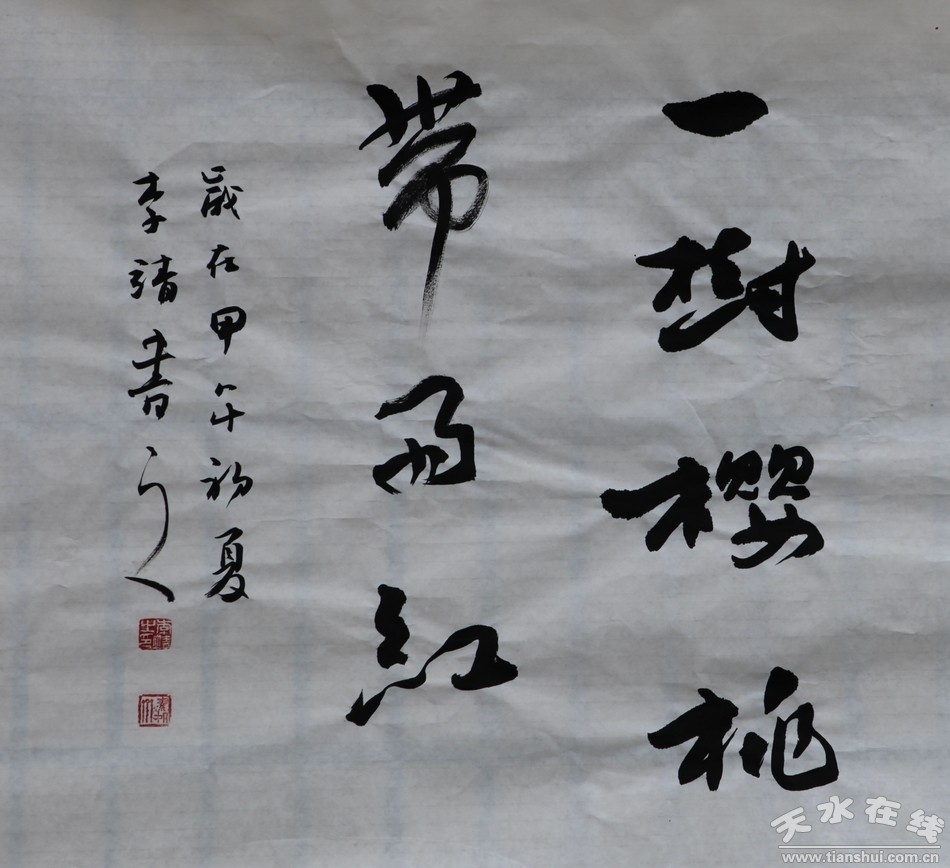 一樹櫻桃
帶雨紅
歲在甲午初夏
李靖書之
天水在线
www.tianshui.com.cn